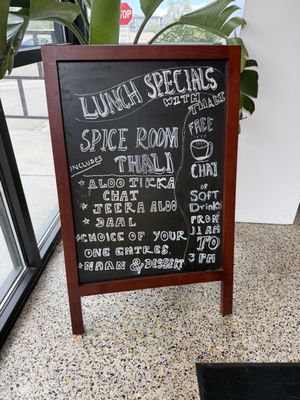 STOP
LUNCH SPECIALS
WITH THALI
SPICE ROOM
THALI
INCLUDES
* ALOO TIKKA
CHAT
* JEERA ALOO
* DAAL
* CHOICE OF YOUR
ONE ENTRES
* NAAN & DESSERT
FREE
CHAI
OR
SOFT
DRINKS
FROM
11AM
TO
3PM